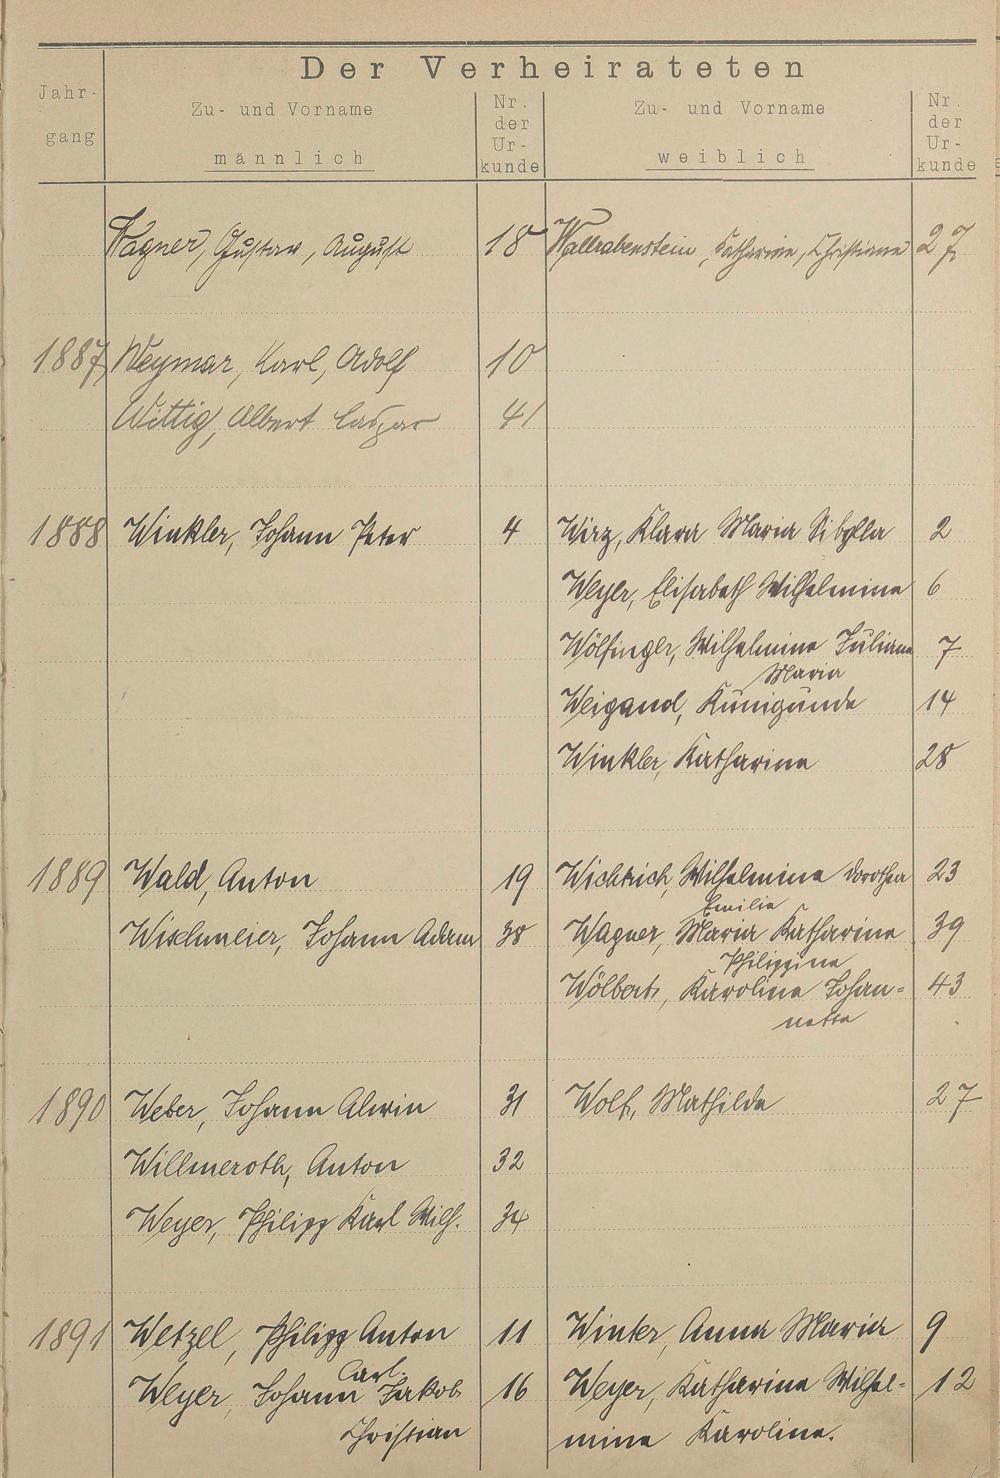 Der Verheirateten
Jahr-
gang
Zu- und Vorname
männlich
Nr.
der
Ur-
kunde
Zu- und Vorname
weiblich
Nr.
der
Ur-
kunde
Wagner, Gustav, August 18 Wallrabenstein, Katharine, Christiane 27
1887 Weymar, Karl, Adolf 10
Wittig, Albert Caspar 41
1888 Winkler, Johann Peter 4 Wirz, Klara Maria Sibylla 2
Weyer, Elisabeth Wilhelmine 6
Wölfinger, Wilhelmine Juliane 7
Maria
Weigand, Kunigunde 14
Winkler, Katharina 28
1889 Wald, Anton 19 Wichtrich, Wilhelmine Dorothea 23
Emilie
Wischmeier, Johann Adam 38 Wagner, Maria Katharine 39
Philippine
Wölbert, Karoline Johan= 43
nette
1890 Weber, Johann Alwin 31 Wolf, Mathilde 27
Willmeroth, Anton 32
Weyer, Philipp Karl Wilh. 34
1891 Wetzel, Philipp Anton 11 Winter, Anna Maria 9
Carl
Weyer, Johann Jakob 16 Weyer, Katharina Wilhel= 12
Christian mine Karoline.